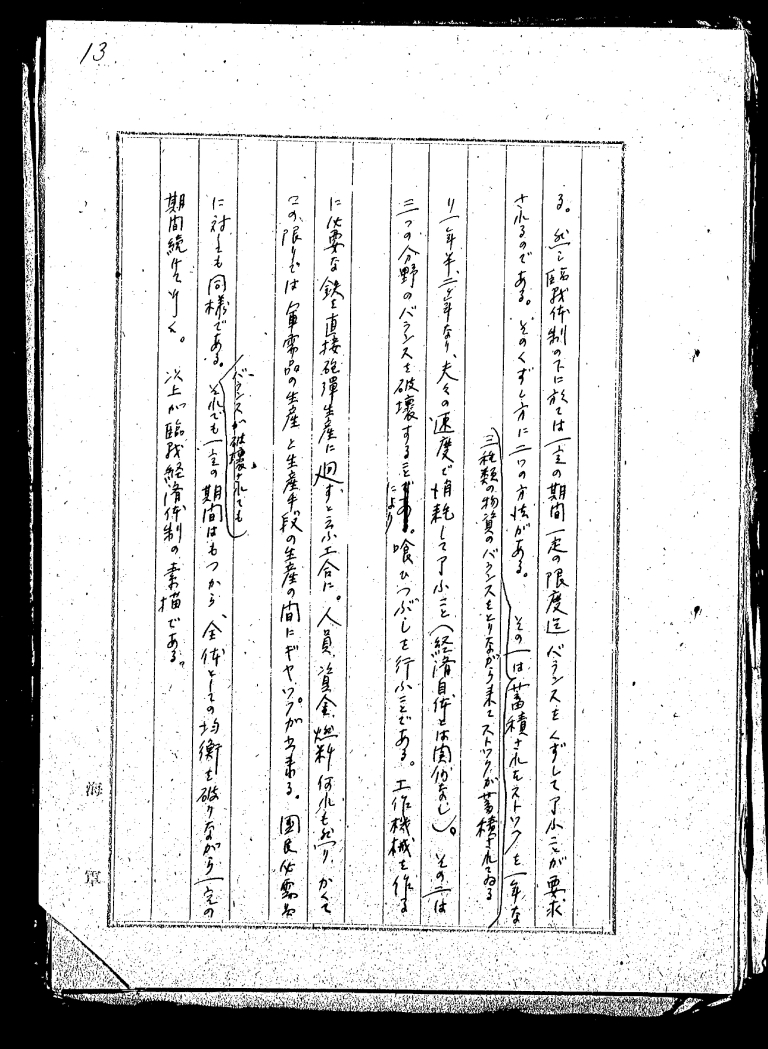 13
る。然し臨戦体制の下に於ては一定の期間一定の限度迄バランスをくずして了ふことが要求
されるのである。そのくずし方に二つの方法がある。その一は蓄積されたストックを一年な
三種類の物資のバランスをとりながら来てストックが蓄積されてゐる
り一年半、二年なり、夫々の速度で消耗して了ふこと（経済自体とは関係なし）。その二は
三つの分野のバランスを破壊することにより喰ひつぶしを行ふことである。工作機械を作る
に必要な鉄を直接砲弾生産に廻すと云ふ工合に。人員、資金、燃料何れも然り、かくて
この限りでは軍需品の生産と生産手段の生産の間にギヤツプが出来る。国民必需品
に対しても同様である。それでも一定の期間はもつから、全体としての均衡を破りながら一定の
バランスが破壊されても
期間続けて行く。以上が臨戦経済体制の素描である。
海軍